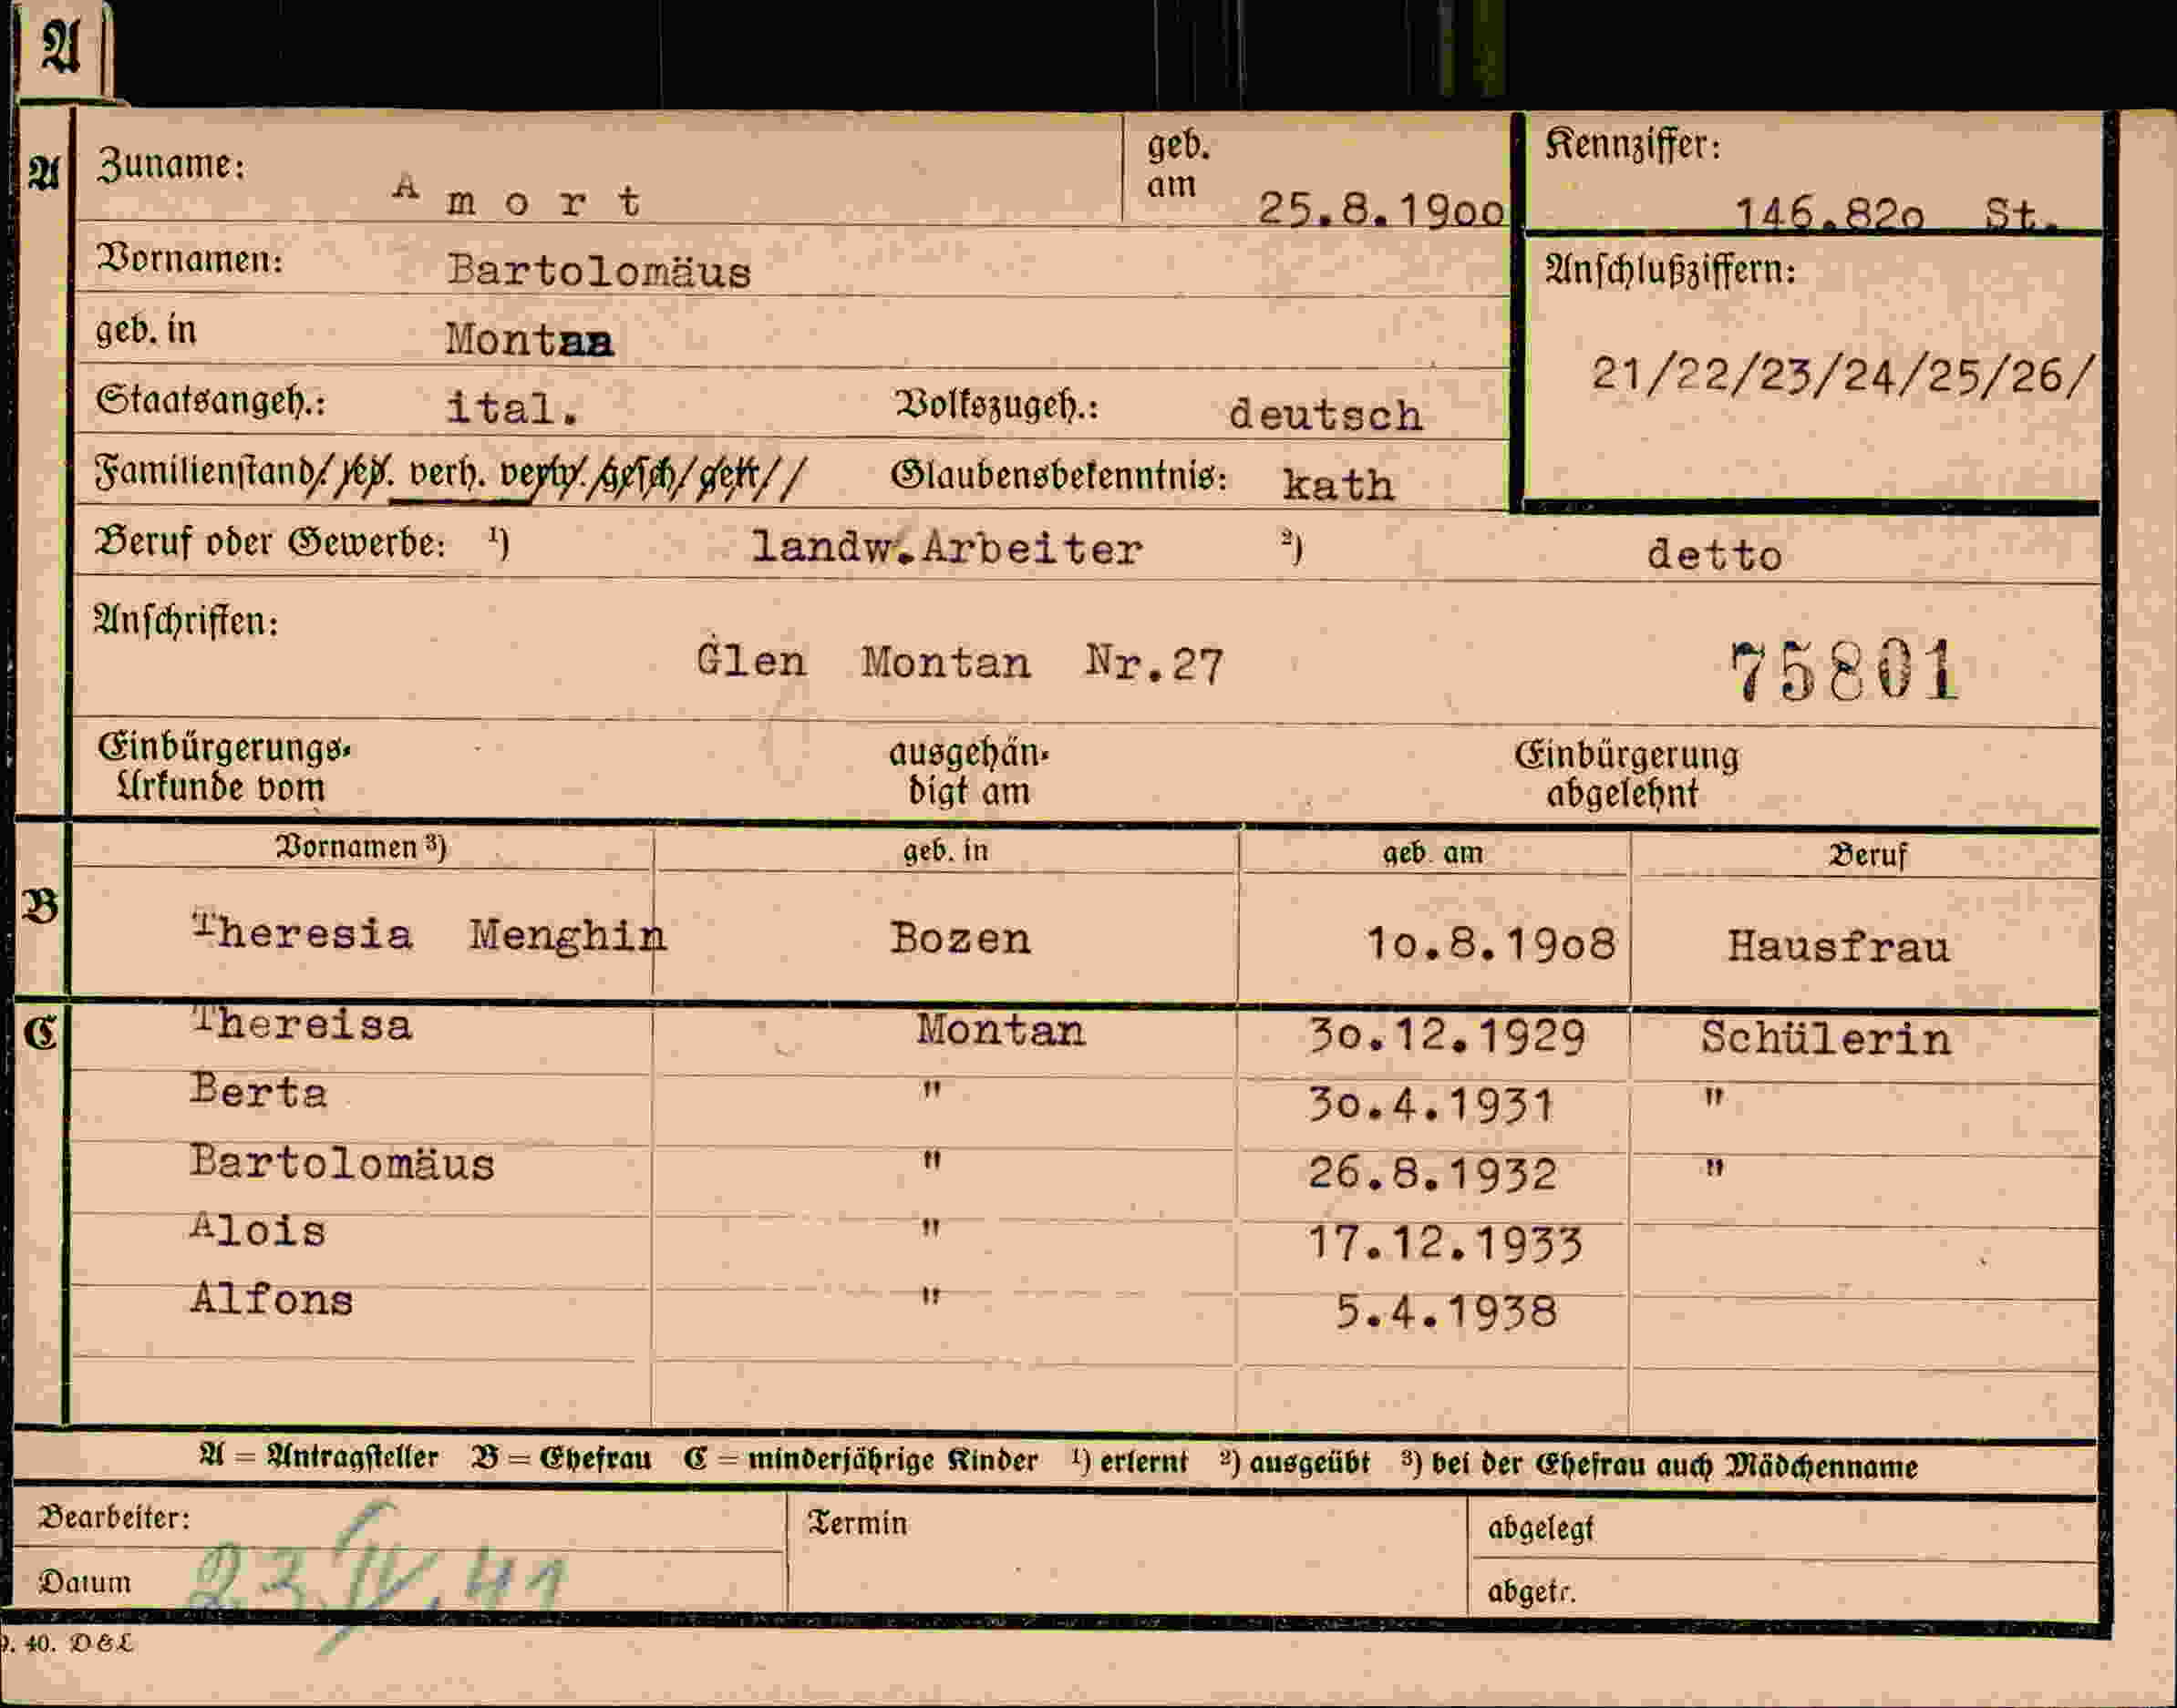 A
A Zuname: A m o r t geb. am 25.8.1900 Kennziffer: 146.820 St.
Vornamen: Bartolomäus Anschlußziffern:
geb. in Montan
21/22/23/24/25/26/
Staatsangeh.: ital. Volkszugeh.: deutsch
Familienstand/ led. verh. verw. gesch/ getr// Glaubensbekenntnis: kath
Beruf oder Gewerbe: ¹) landw.Arbeiter ²) detto
Anschriften:
Glen Montan Nr.27 75801
Einbürgerungs- ausgehän- Einbürgerung
Urkunde vom digt am abgelehnt
Vornamen ³) geb. in geb. am Beruf
B Theresia Menghin Bozen 10.8.1908 Hausfrau
C Thereisa Montan 30.12.1929 Schülerin
Berta " 30.4.1931 "
Bartolomäus " 26.8.1932 "
Alois " 17.12.1933
Alfons " 5.4.1938
A = Antragsteller B = Ehefrau C = minderjährige Kinder ¹) erlernt ²) ausgeübt ³) bei der Ehefrau auch Mädchenname
Bearbeiter: Termin abgelegt
Datum 23.IV.41 abgetr.
40. D&L